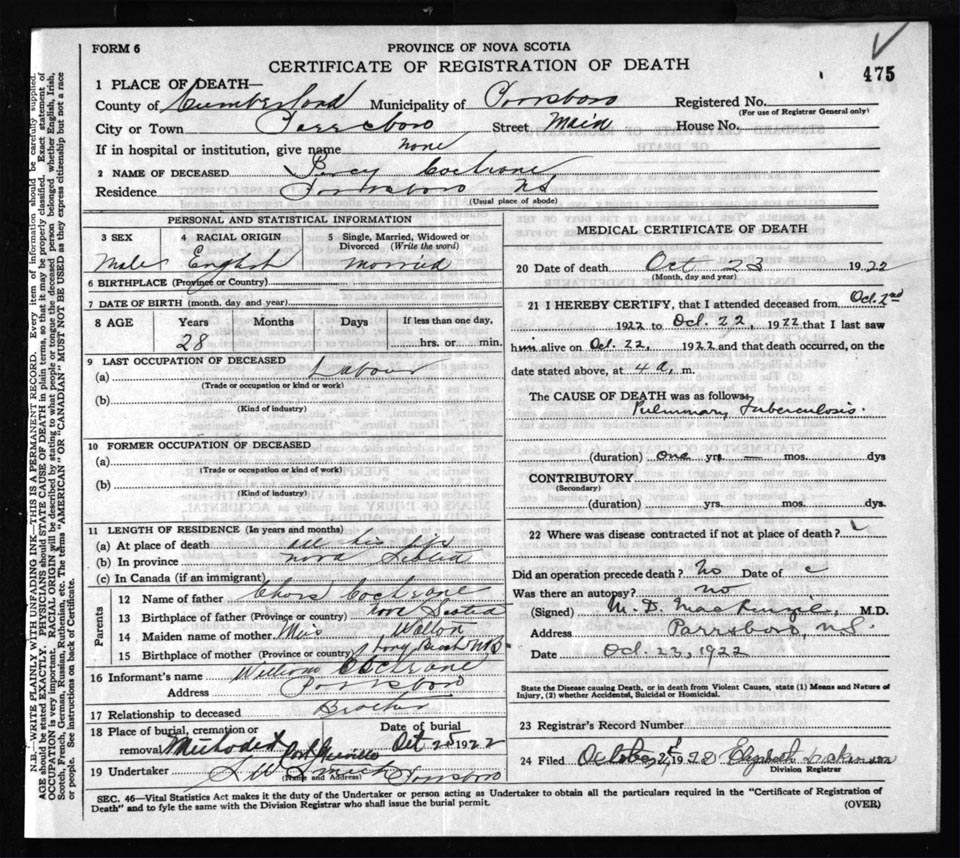 475
FORM 6
PROVINCE OF NOVA SCOTIA
CERTIFICATE OF REGISTRATION OF DEATH
1 PLACE OF DEATH—
County of Cumberland Municipality of Parrsboro Registered No.
(For use of Registrar General only)
City or Town Parrsboro Street Main House No.
If in hospital or institution, give name none
2 NAME OF DECEASED Percy Cochrane
Residence Parrsboro NS
(Usual place of abode)
PERSONAL AND STATISTICAL INFORMATION
3 SEX
Male
4 RACIAL ORIGIN
English
5 Single, Married, Widowed or Divorced (Write the word)
Married
6 BIRTHPLACE (Province or Country)
7 DATE OF BIRTH (month, day and year)
8 AGE Years Months Days If less than one day,
28 hrs. or min.
9 LAST OCCUPATION OF DECEASED
(a) Labour
(Trade or occupation or kind of work)
(b)
(Kind of industry)
10 FORMER OCCUPATION OF DECEASED
(a)
(Trade or occupation or kind of work)
(b)
(Kind of industry)
11 LENGTH OF RESIDENCE (In years and months)
(a) At place of death all his life
(b) In province Nova Scotia
(c) In Canada (if an immigrant)
Parents
12 Name of father Cochrane
13 Birthplace of father (Province or country) Nova Scotia
14 Maiden name of mother Walton
15 Birthplace of mother (Province or country)
16 Informant's name William Cochrane
Address Parrsboro
17 Relationship to deceased Brother
18 Place of burial, cremation or removal Methodist
Date of burial Oct 25 1922
19 Undertaker Parrsboro
(Name and Address)
MEDICAL CERTIFICATE OF DEATH
20 Date of death Oct 23 1922
(Month, day and year)
21 I HEREBY CERTIFY, that I attended deceased from Oct. 2nd
1922 to Oct. 22, 1922 that I last saw
him alive on Oct. 22, 1922 and that death occurred, on the
date stated above, at 4 a. m.
The CAUSE OF DEATH was as follows:
Pulmonary Tuberculosis.
(duration) one yrs. — mos. dys
CONTRIBUTORY
(Secondary)
(duration) yrs. mos. dys.
22 Where was disease contracted if not at place of death?
Did an operation precede death? No Date of
Was there an autopsy? no
(Signed) M. D. MacKenzie, M.D.
Address Parrsboro, N.S.
Date Oct. 23, 1922
State the Disease causing Death, or in death from Violent Causes, state (1) Means and Nature of
Injury, (2) whether Accidental, Suicidal or Homicidal.
23 Registrar's Record Number
24 Filed October Elizabeth
Division Registrar
SEC. 46—Vital Statistics Act makes it the duty of the Undertaker or person acting as Undertaker to obtain all the particulars required in the "Certificate of Registration of
Death" and to fyle the same with the Division Registrar who shall issue the burial permit.
(OVER)
N.B.—WRITE PLAINLY WITH UNFADING INK—THIS IS A PERMANENT RECORD. Every item of information should be carefully supplied.
AGE should be stated EXACTLY. PHYSICIANS should STATE CAUSE OF DEATH in plain terms, so that it may be properly classified. Exact statement of
OCCUPATION is very important. RACIAL ORIGIN will be described by stating to what people or tongue the deceased person belonged whether English, Irish,
Scotch, French, German, Russian, Ruthenian, etc. The terms "AMERICAN" OR "CANADIAN" MUST NOT BE USED as they express citizenship but not a race
or people. See instructions on back of Certificate.